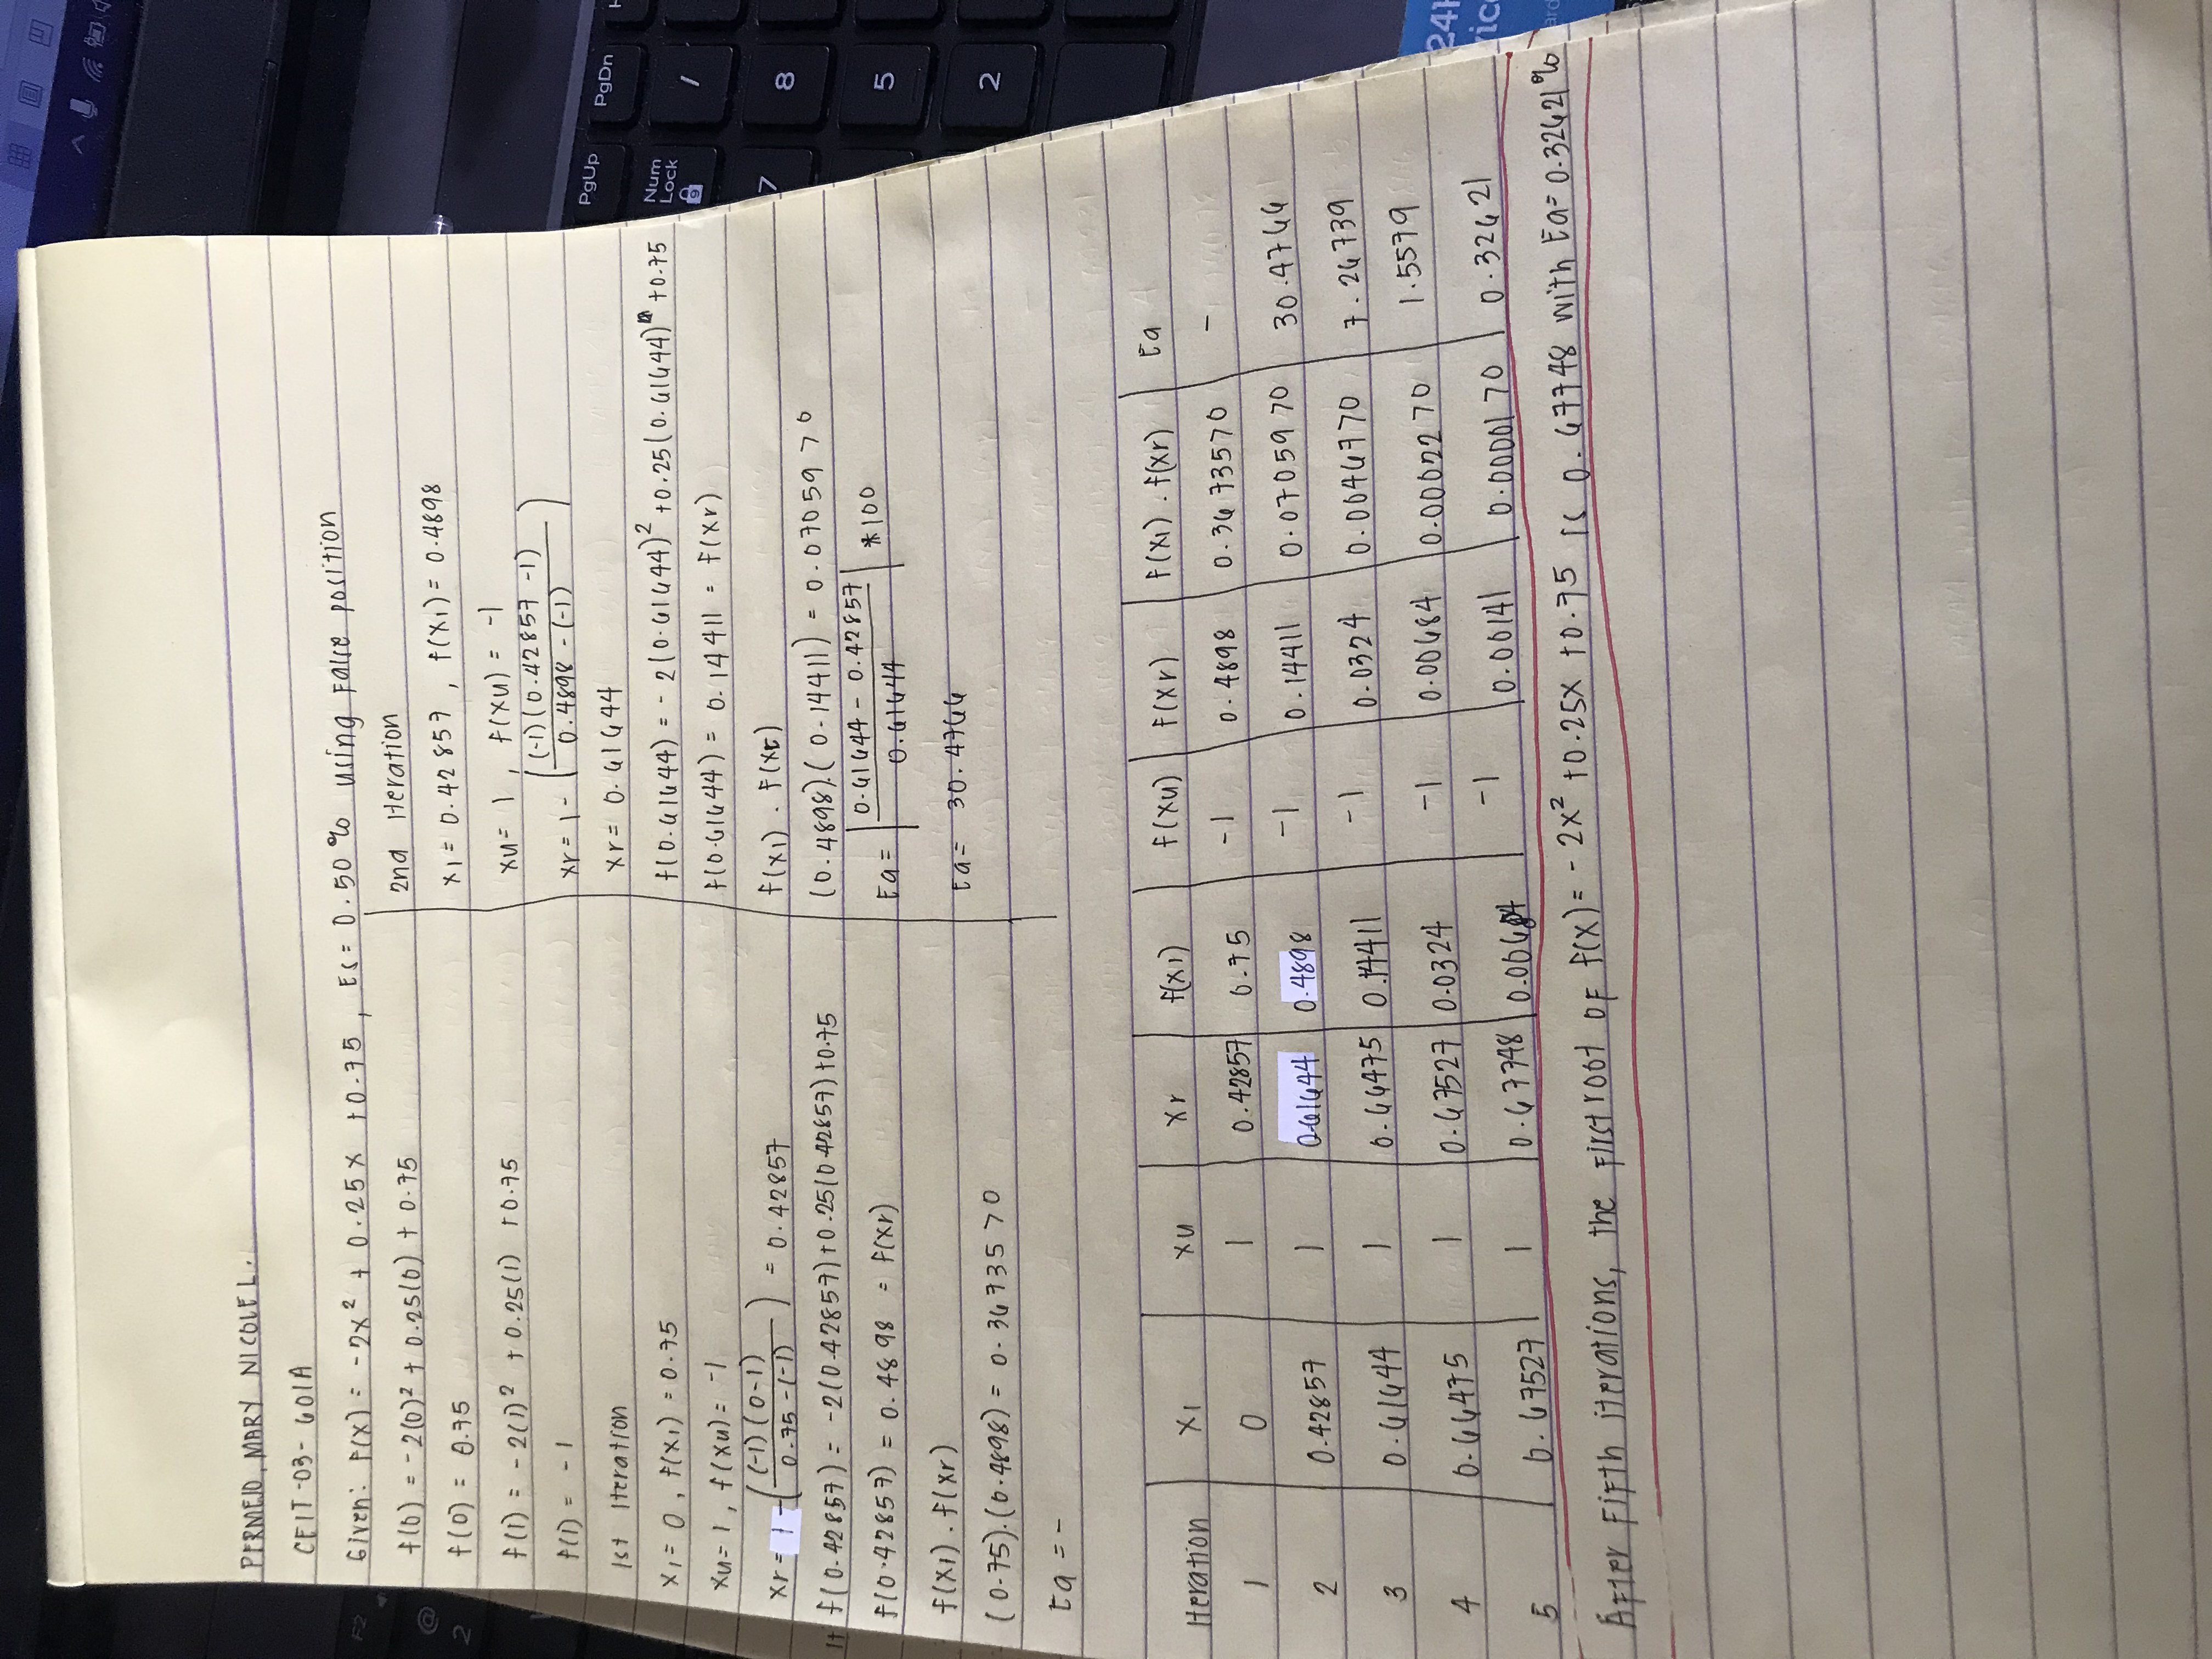 PERMEJO, MARY NICOLE L.
CEIT-03-601A
Given: f(x) = -2x² + 0.25x + 0.75, Es = 0.50% using False position
f(0) = -2(0)² + 0.25(0) + 0.75
f(0) = 0.75
f(1) = -2(1)² + 0.25(1) + 0.75
f(1) = -1
1st Iteration
x1 = 0, f(x1) = 0.75
xu = 1, f(xu) = -1
xr = 1 - ((-1)(0-1) / 0.75-(-1)) = 0.42857
f(0.42857) = -2(0.42857)+0.25(0.42857)+0.75
f(0.42857) = 0.4898 = f(xr)
f(x1) . f(xr)
(0.75).(0.4898) = 0.36735 > 0
Ea = -
2nd Iteration
x1 = 0.42857, f(x1) = 0.4898
xu = 1, f(xu) = -1
xr = 1 - ((-1)(0.42857-1) / 0.4898-(-1))
xr = 0.61644
f(0.61644) = -2(0.61644)² + 0.25(0.61644) + 0.75
f(0.61644) = 0.14411 = f(xr)
f(x1) . f(xr)
(0.4898).(0.14411) = 0.07059 > 0
Ea = | 0.61644 - 0.42857 / 0.61644 | *100
Ea = 30.4766
Iteration x1 xu xr f(x1) f(xu) f(xr) f(x1) . f(xr) Ea
1 0 1 0.42857 0.75 -1 0.4898 0.36735>0 -
2 0.42857 1 0.61644 0.4898 -1 0.14411 0.07059>0 30.4766
3 0.61644 1 0.66475 0.14411 -1 0.0324 0.00467>0 7.26739
4 0.66475 1 0.67527 0.0324 -1 0.00684 0.00022>0 1.5579
5 0.67527 1 0.67748 0.00684 -1 0.00141 0.00001>0 0.32621
After Fifth iterations, the first root of f(x) = -2x² + 0.25x + 0.75 is 0.67748 with Ea = 0.32621%
F2
@
2
PgUp
PgDn
Num
Lock
9
/
7
8
5
2